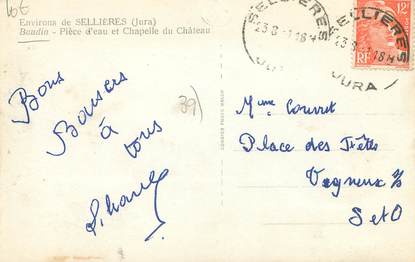 10€
Environs de SELLIÈRES (Jura)
Baudin - Pièce d'eau et Chapelle du Château
SELLIERES
23-8
18H
JURA
SELLIERES
23-8
18H
JURA
12F
RF
39)
Bons
Baisers
à
tous
Mme Couvret
Place des Fêtes
Vigneux s/s
S et O